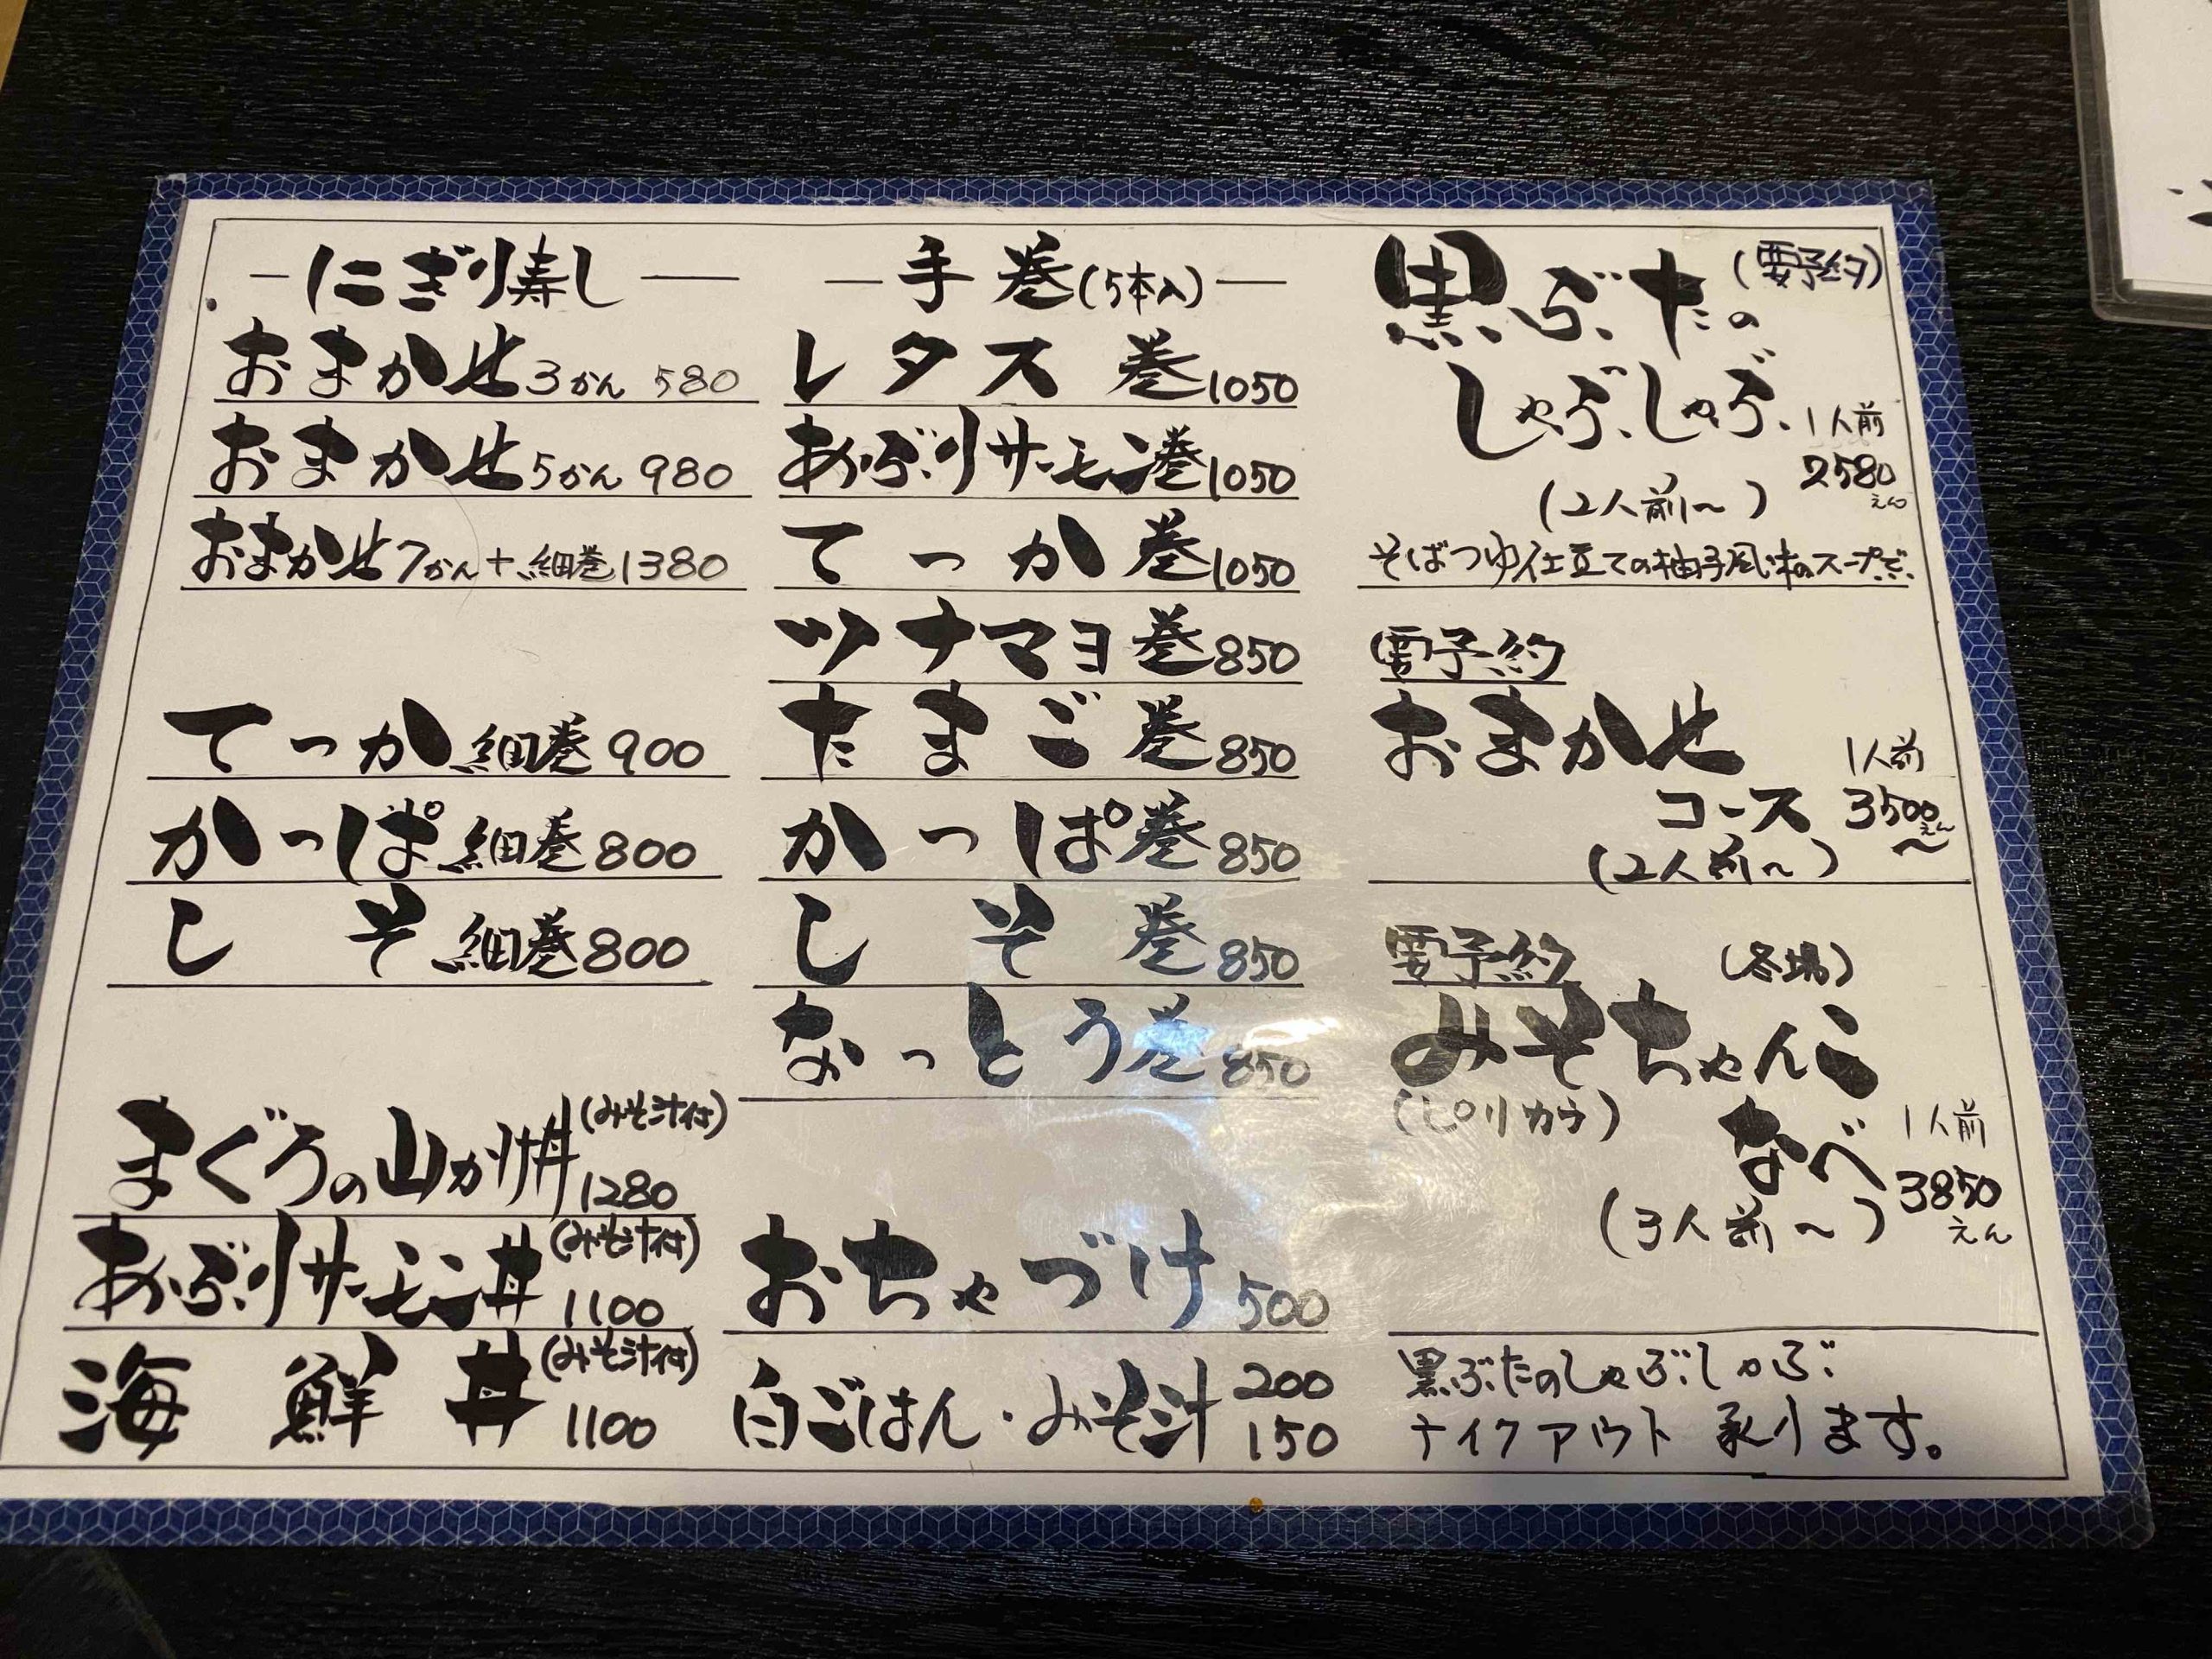 にぎり寿し
おまかせ3かん 580
おまかせ5かん 980
おまかせ7かん+細巻1380
てっか細巻900
かっぱ細巻800
しそ細巻800
まぐろの山かけ丼(みそ汁付)1280
あぶりサーモン丼(みそ汁付)1100
海鮮丼(みそ汁付)1100
手巻(5本入)
レタス巻1050
あぶりサーモン巻1050
てっか巻1050
ツナマヨ巻850
たまご巻850
かっぱ巻850
しそ巻850
なっとう巻850
おちゃづけ500
白ごはん・みそ汁 200 150
黒ぶたの(要予約)
しゃぶしゃぶ 1人前
2580えん
(2人前〜)
そばつゆ仕立ての柚子風味のスープで
要予約
おまかせ 1人前
コース 3500えん〜
(2人前〜)
要予約 (冬場)
みそちゃんこ
(ピリカラ)
なべ 1人前
3850えん
(3人前〜)
黒ぶたのしゃぶしゃぶ
テイクアウト 承ります。